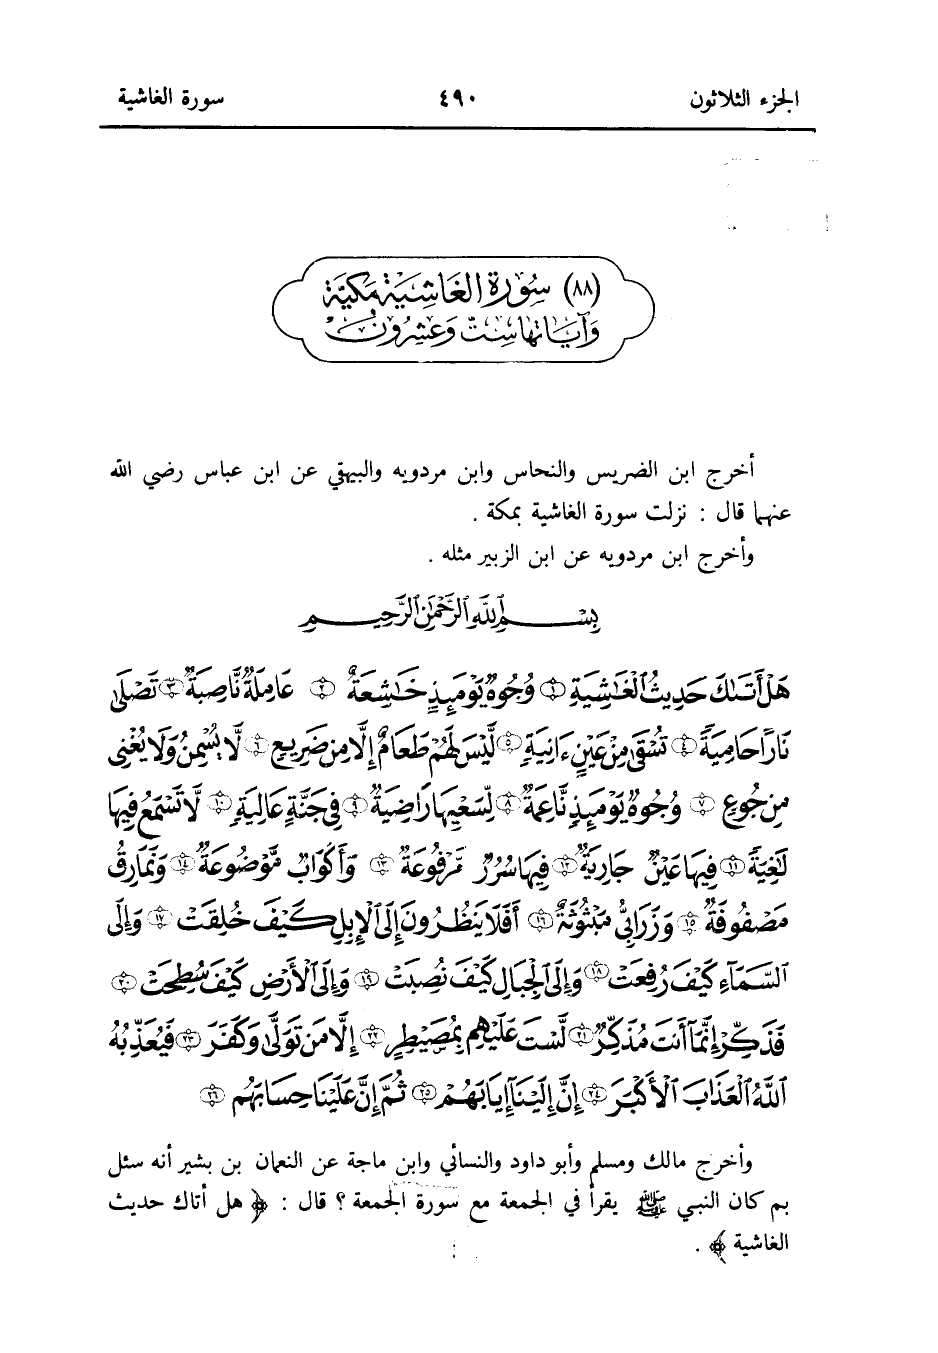 الجزء الثلاثون ٤٩٠ سورة الغاشية
(٨٨) سُورَة الغَاشِيَة مَكيَّة
وَآيَاتهَا سِتّ وَعشرُون
أخرج ابن الضريس والنحاس وابن مردويه والبيهقي عن ابن عباس رضي الله
عنهما قال : نزلت سورة الغاشية بمكة .
وأخرج ابن مردويه عن ابن الزبير مثله .
بِسْمِ ٱللَّهِ ٱلرَّحْمَٰنِ ٱلرَّحِيمِ
هَلْ أَتَىٰكَ حَدِيثُ ٱلْغَٰشِيَةِ ١ وُجُوهٌ يَوْمَئِذٍ خَٰشِعَةٌ ٢ عَامِلَةٌ نَّاصِبَةٌ ٣ تَصْلَىٰ
نَارًا حَامِيَةً ٤ تُسْقَىٰ مِنْ عَيْنٍ ءَانِيَةٍ ٥ لَّيْسَ لَهُمْ طَعَامٌ إِلَّا مِن ضَرِيعٍ ٦ لَّا يُسْمِنُ وَلَا يُغْنِي
مِن جُوعٍ ٧ وُجُوهٌ يَوْمَئِذٍ نَّاعِمَةٌ ٨ لِّسَعْيِهَا رَاضِيَةٌ ٩ فِي جَنَّةٍ عَالِيَةٍ ١٠ لَّا تَسْمَعُ فِيهَا
لَٰغِيَةً ١١ فِيهَا عَيْنٌ جَارِيَةٌ ١٢ فِيهَا سُرُرٌ مَّرْفُوعَةٌ ١٣ وَأَكْوَابٌ مَّوْضُوعَةٌ ١٤ وَنَمَارِقُ
مَصْفُوفَةٌ ١٥ وَزَرَابِيُّ مَبْثُوثَةٌ ١٦ أَفَلَا يَنظُرُونَ إِلَى ٱلْإِبِلِ كَيْفَ خُلِقَتْ ١٧ وَإِلَى
ٱلسَّمَآءِ كَيْفَ رُفِعَتْ ١٨ وَإِلَى ٱلْجِبَالِ كَيْفَ نُصِبَتْ ١٩ وَإِلَى ٱلْأَرْضِ كَيْفَ سُطِحَتْ ٢٠
فَذَكِّرْ إِنَّمَآ أَنتَ مُذَكِّرٌ ٢١ لَّسْتَ عَلَيْهِم بِمُصَيْطِرٍ ٢٢ إِلَّا مَن تَوَلَّىٰ وَكَفَرَ ٢٣ فَيُعَذِّبُهُ
ٱللَّهُ ٱلْعَذَابَ ٱلْأَكْبَرَ ٢٤ إِنَّ إِلَيْنَآ إِيَابَهُمْ ٢٥ ثُمَّ إِنَّ عَلَيْنَا حِسَابَهُم ٢٦
وأخرج مالك ومسلم وأبو داود والنسائي وابن ماجة عن النعمان بن بشير أنه سئل
بم كان النبي ﷺ يقرأ في الجمعة مع سورة الجمعة ؟ قال : ﴿ هل أتاك حديث
الغاشية ﴾ .